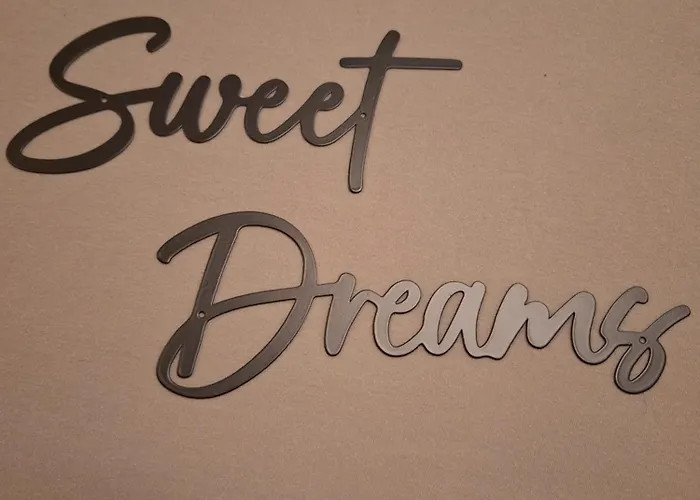 Sweet
Dreams